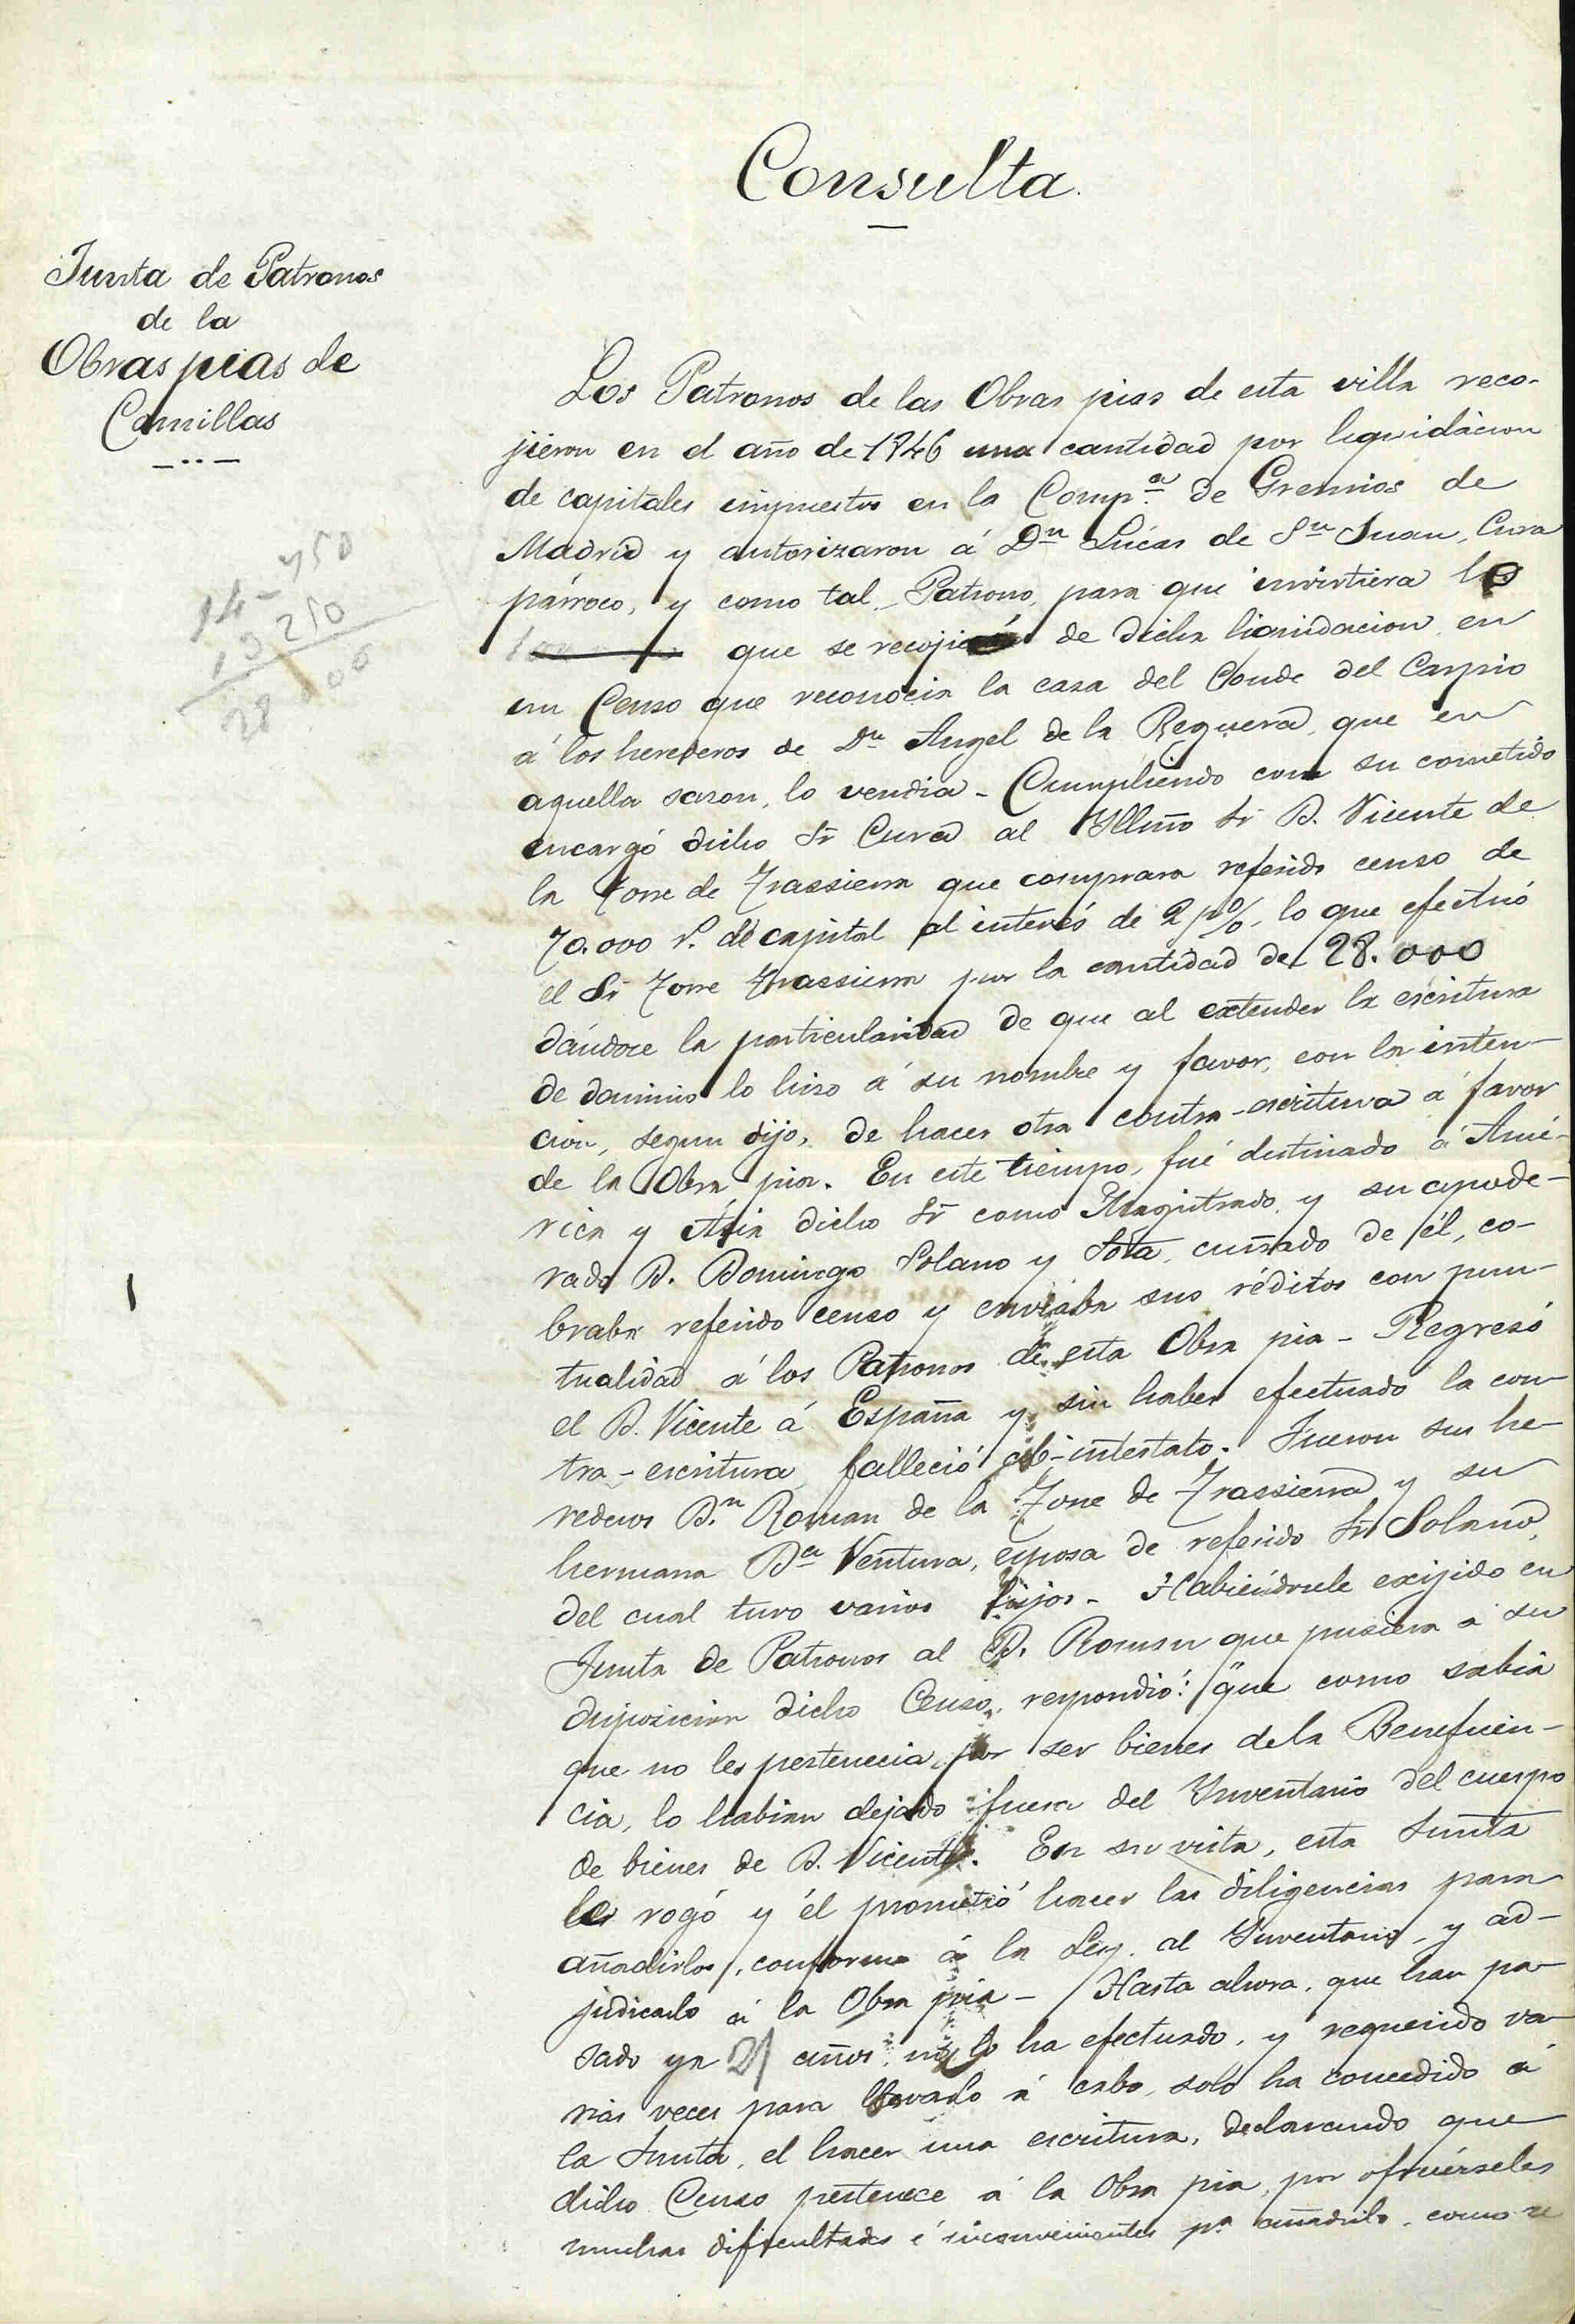 Consulta.
Junta de Patronos
de la
Obras pias de
Comillas
14-750
13 250
28 000
Los Patronos de las Obras pias de esta villa reco-
jieron en el año de 1846 una cantidad por liquidacion
de capitales impuestos en la Comp.ª de Gremios de
Madrid y autorizaron á Dn Lúcas de Sn Juan, Cura
párroco, y como tal Patrono, para que invirtiera lo
que se recojió de dicha liquidacion en
un Censo que reconocia la casa del Conde del Carpio
á los herederos de Dn Angel de la Reguera, que en
aquella sazon, lo vendia - Cumpliendo con su cometido
encargó dicho Sr Cura al Yllmo Sr D. Vicente de
la Torre de Trassierra que comprara referido censo de
70.000 r. de capital al interés de 2 p%, lo que efectuó
el Sr Torre Trassierra por la cantidad de 28.000
dándose la particularidad de que al extender la escritura
de dominio lo hizo á su nombre y favor, con la inten-
cion, segun dijo, de hacer otra contra-escritura á favor
de la Obra pia. En este tiempo, fué destinado á Amé-
rica y Ásia dicho Sr como Magistrado, y su apode-
rado D. Domingo Solano y Sota, cuñado de él, co-
braba referido censo y enviaba sus réditos con pun-
tualidad á los Patronos de esta Obra pia - Regresó
el D. Vicente á España y sin haber efectuado la con-
tra-escritura falleció ab-intestato. Fueron sus he-
rederos D.n Roman de la Torre de Trassierra y su
hermana Da Ventura, esposa de referido Sr Solano,
del cual tuvo varios hijos - Habiéndosele exijido en
Junta de Patronos al D. Roman que pusiera á su
disposicion dicho Censo, respondió: "que como sabia
que no les pertenecia, por ser bienes de la Beneficen-
cia, lo habian dejado fuera del Ynventario del cuerpo
de bienes de D. Vicente. En su vista, esta Junta
le rogó y él prometió hacer las diligencias para
añadirlo, conforme á la Ley, al Ynventario, y ad-
judicarlo á la Obra pia - Hasta ahora, que han pa-
sado ya 21 años, no lo ha efectuado, y requerido va-
rias veces para llevarlo á cabo, solo ha concedido á
la Junta, el hacer una escritura, declarando que
dicho Censo pertenece á la Obra pia, por ofrecérseles
muchas dificultades é inconvenientes pa añadirlo, como se